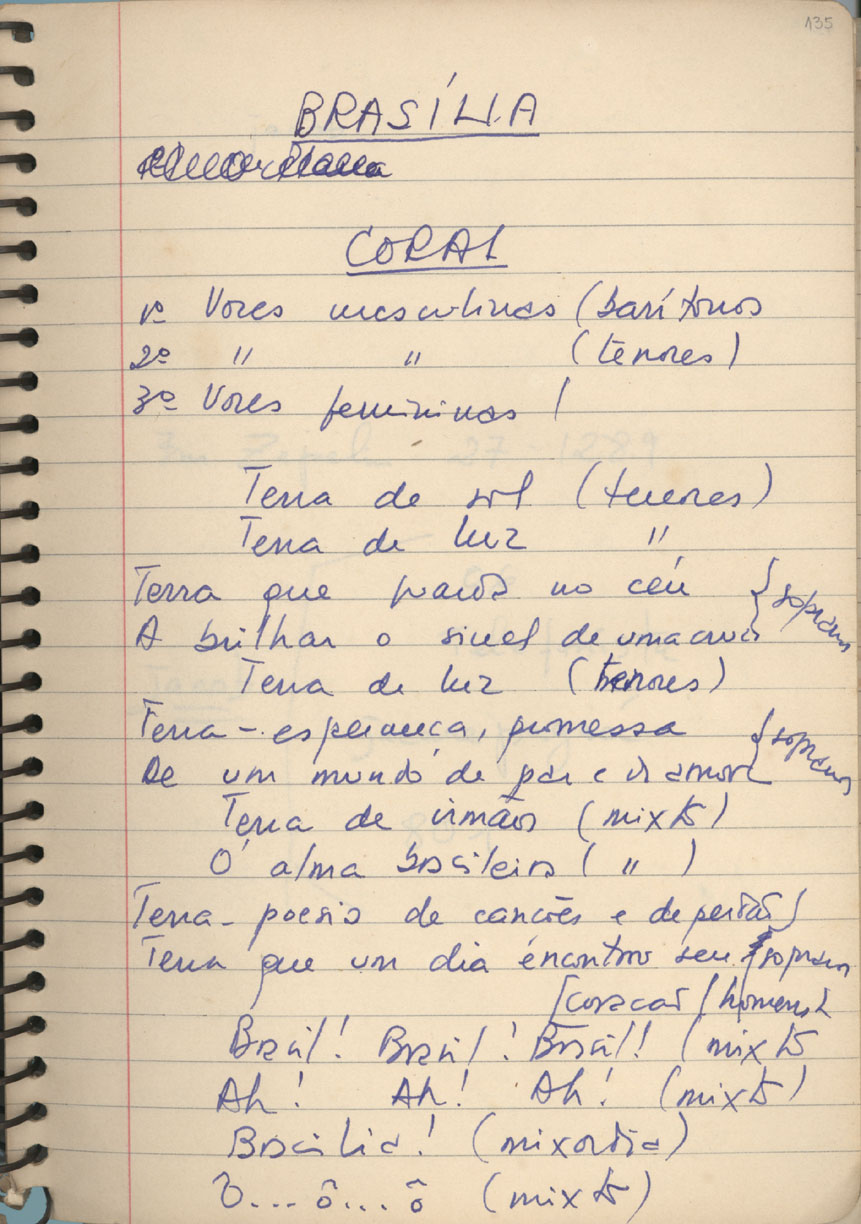 135
BRASÍLIA
CORAL
1º Vozes masculinas (barítonos
2º " " (tenores)
3º Vozes femininas (
Terra de sol (tenores)
Terra de luz "
Terra que guarda no céu } sopranos
A brilhar o sinal de uma cruz
Terra de luz (tenores)
Terra-esperança, promessa } sopranos
De um mundo de paz e de amor
Terra de irmãos (mixto)
Ó alma brasileira ( " )
Terra-poesia de canções e de perdão }
Terra que um dia encontrou seu { sopranos
[coração / homens]
Brasil! Brasil! Brasil! (mixto
Ah! Ah! Ah! (mixto)
Brasília! (mixórdia)
Ô... ô... ô (mixto)